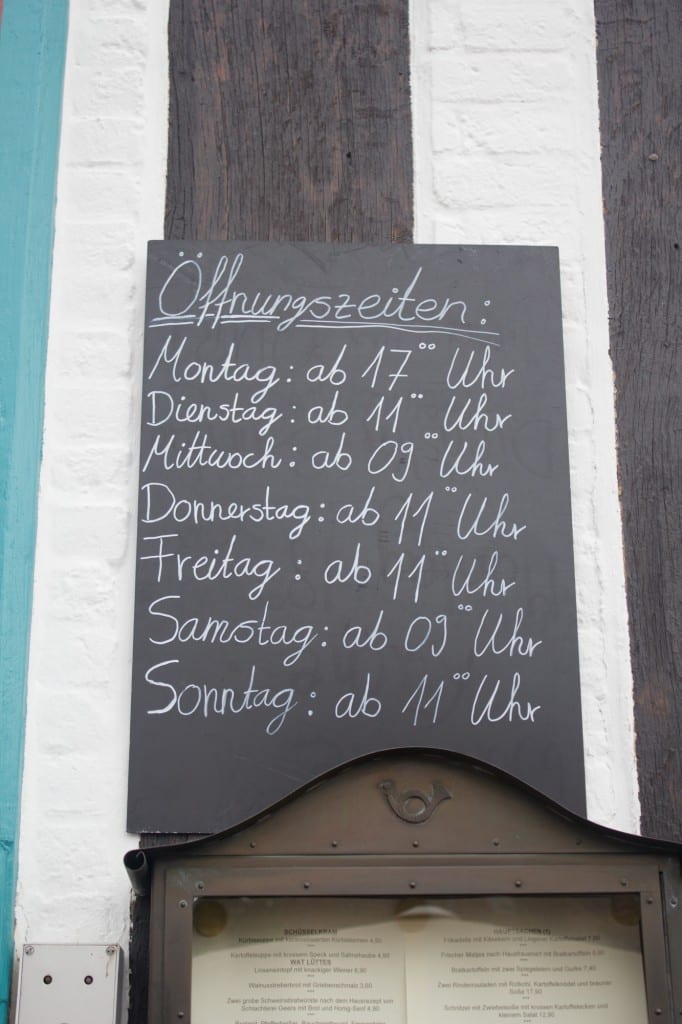 Öffnungszeiten:
Montag: ab 17°° Uhr
Dienstag: ab 11°° Uhr
Mittwoch: ab 09°° Uhr
Donnerstag: ab 11°° Uhr
Freitag: ab 11°° Uhr
Samstag: ab 09°° Uhr
Sonntag: ab 11°° Uhr
SCHÜSSELKRAM
Kürbissuppe mit Kürbiskernen 4,50
***
Kartoffelsuppe mit krossem Speck und Sahnehaube 4,90
WAT LÜTTES
Linseneintopf mit knackiger Wiener 6,90
***
Walnussbrot mit Griebenschmalz 3,60
***
Zwei grobe Schweinsbratwürste nach dem Hausrezept von
Schlachterei Geers mit Brot und Honig-Senf 4,90
***
HAUPTSACHEN (1)
Frikadelle mit und Kartoffelsalat 7,80
***
Frischer Matjes nach Hausfrauenart mit Bratkartoffeln 9,80
***
Bratkartoffeln mit zwei Spiegeleiern und Gurke 7,40
***
Zwei Rinderrouladen mit Rotkohl, Kartoffelknödel und brauner
Soße 17,90
***
Schnitzel mit Zwiebelsoße mit krossen Kartoffelecken und
kleinem Salat 12,90
***